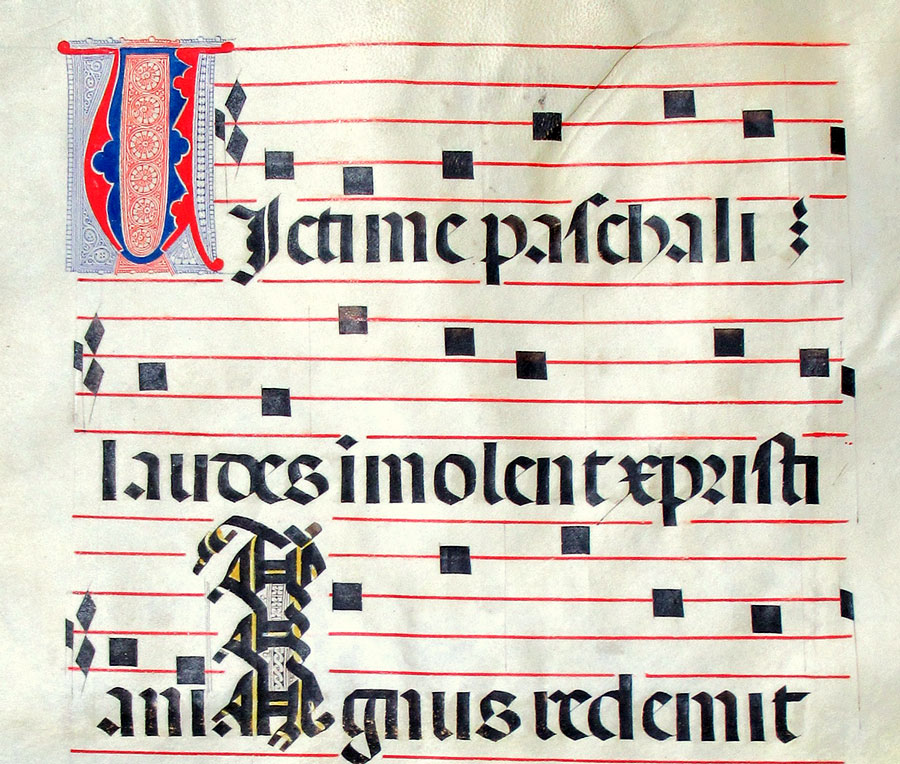 VJctime paschali :
laudes imolent xpristi
ani Agnus redemit